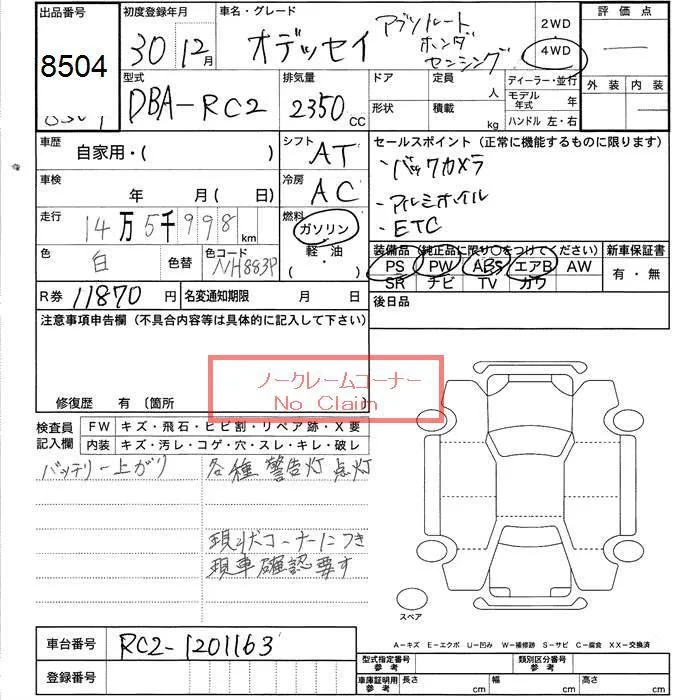 出品番号 初度登録年月 車名・グレード 評価点
8504 30年 12月 オデッセイ アブソルート ホンダ センシング 2WD 4WD
型式 排気量 ドア 定員 ディーラー・並行 外装 内装
DBA-RC2 2350 CC 人 モデル年式 年
形状 積載 kg ハンドル 左・右
車歴 自家用・( ) シフト AT セールスポイント (正常に機能するものに限ります)
・バックカメラ
車検 年 月( 日) 冷房 AC ・アルミホイール
走行 14万5千998km 燃料 ガソリン ・ETC
軽・油
・( )
色 白 色替 色コード NH883P 装備品 (純正品に限り○をつけてください) 新車保証書
PS PW ABS エアB AW 有・無
SR ナビ TV カワ
R券 11870円 名変通知期限 月 日 後日品
注意事項申告欄 (不具合内容等は具体的に記入して下さい)
ノークレームコーナー
No Claim
修復歴 有 〔箇所 〕
検査員記入欄 FW キズ・飛石・ヒビ割・リペア跡・X要
内装 キズ・汚レ・コゲ・穴・スレ・キレ・破レ
バッテリー上がり 各種警告灯点灯
現状コーナーにつき
現車確認要す
スペア
A-キズ E-エクボ U-凹み W-補修跡 S-サビ C-腐食 XX-交換済
車台番号 RC2-1201163
登録番号
型式指定番号 参考 類別区分番号 参考
車庫証明用 参考 長さ cm 幅 cm 高さ cm